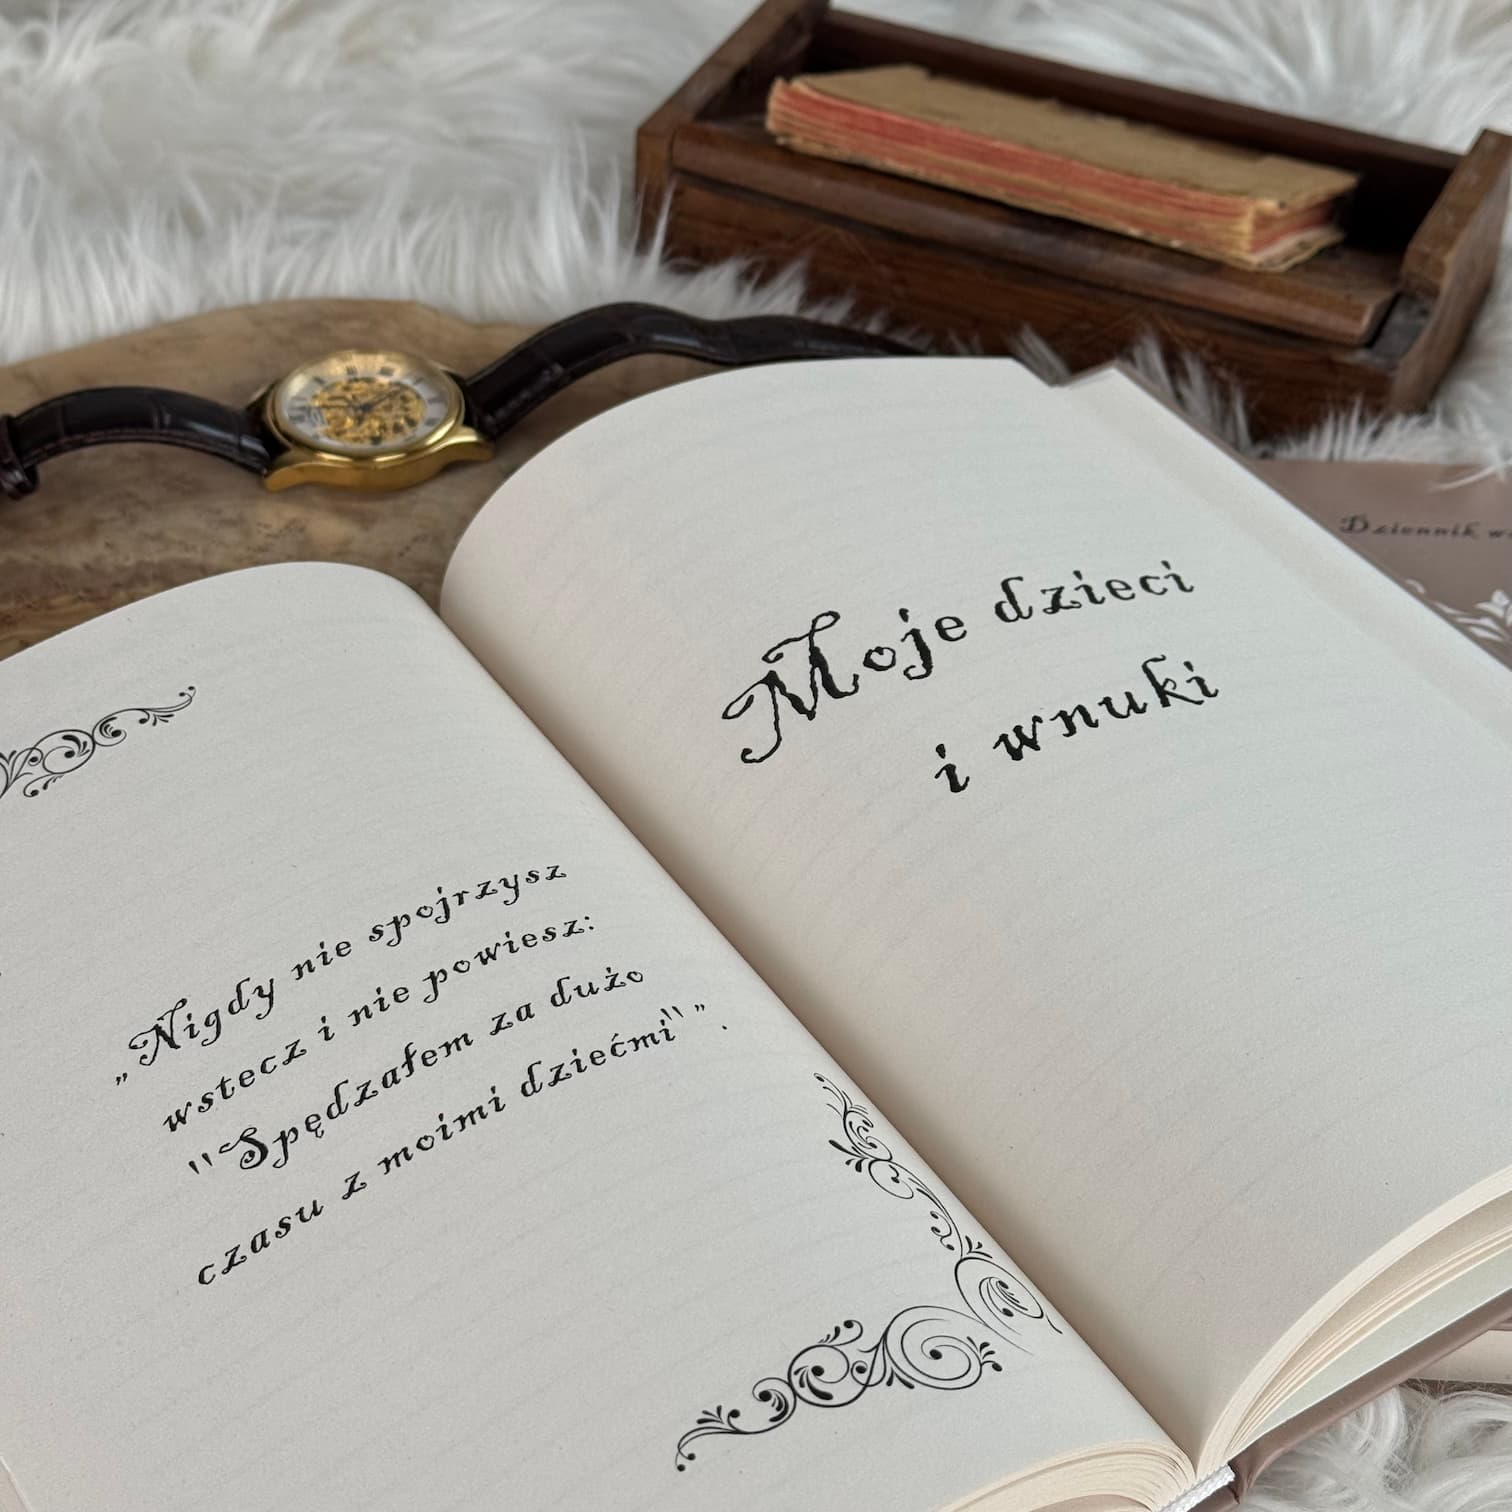 „Nigdy nie spojrzysz
wstecz i nie powiesz:
"Spędzałem za dużo
czasu z moimi dziećmi"”.
Moje dzieci
i wnuki
Dziennik